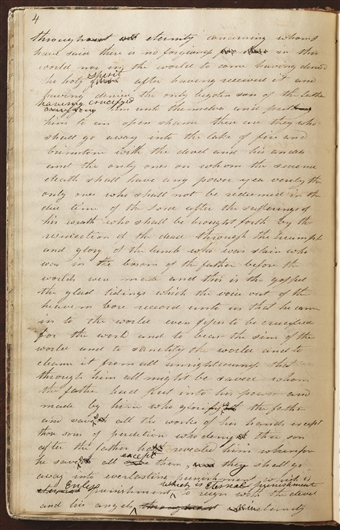 4
throughout all eternity concerning whom I
have said there is no forgivness for them in this
world nor in the world to come having denied
the holy spirit after having received it and
having denied the only begotten son of the father
having crucified him unto themselves and put
him to an open shame these are they who
shall go away into the lake of fire and
brimstone with the devil and his angels
and the only ones on whom the second
death shall have any power yea verily the
only ones who shall not be redeemed in the
due time of the Lord after the sufferings of
his wrath who shall be brought forth by the
resurection of the dead through the triumph
and glory of the lamb who was slain who
was in the bosom of the father before the
worlds were made and this is the gospel
the glad tidings which the voice out of the
heavens bore record unto us that he came
in to the world even Jesus to be crucified
for the world and to bear the sins of the
world and to sanctify the world and to
cleanse it from all unrighteousness that
through him all might be saved whom
the father had put into his power and
made by him who glorifyeth the father
and saveth all the works of his hands except
those sons of perdition who denyeth the son
after the father hath revealed him wherefore
he saveth all except them they shall go
away into everlasting punishment which is
Endless punishment which is Eternal punishment
to reign with the devel
and his angels eternity